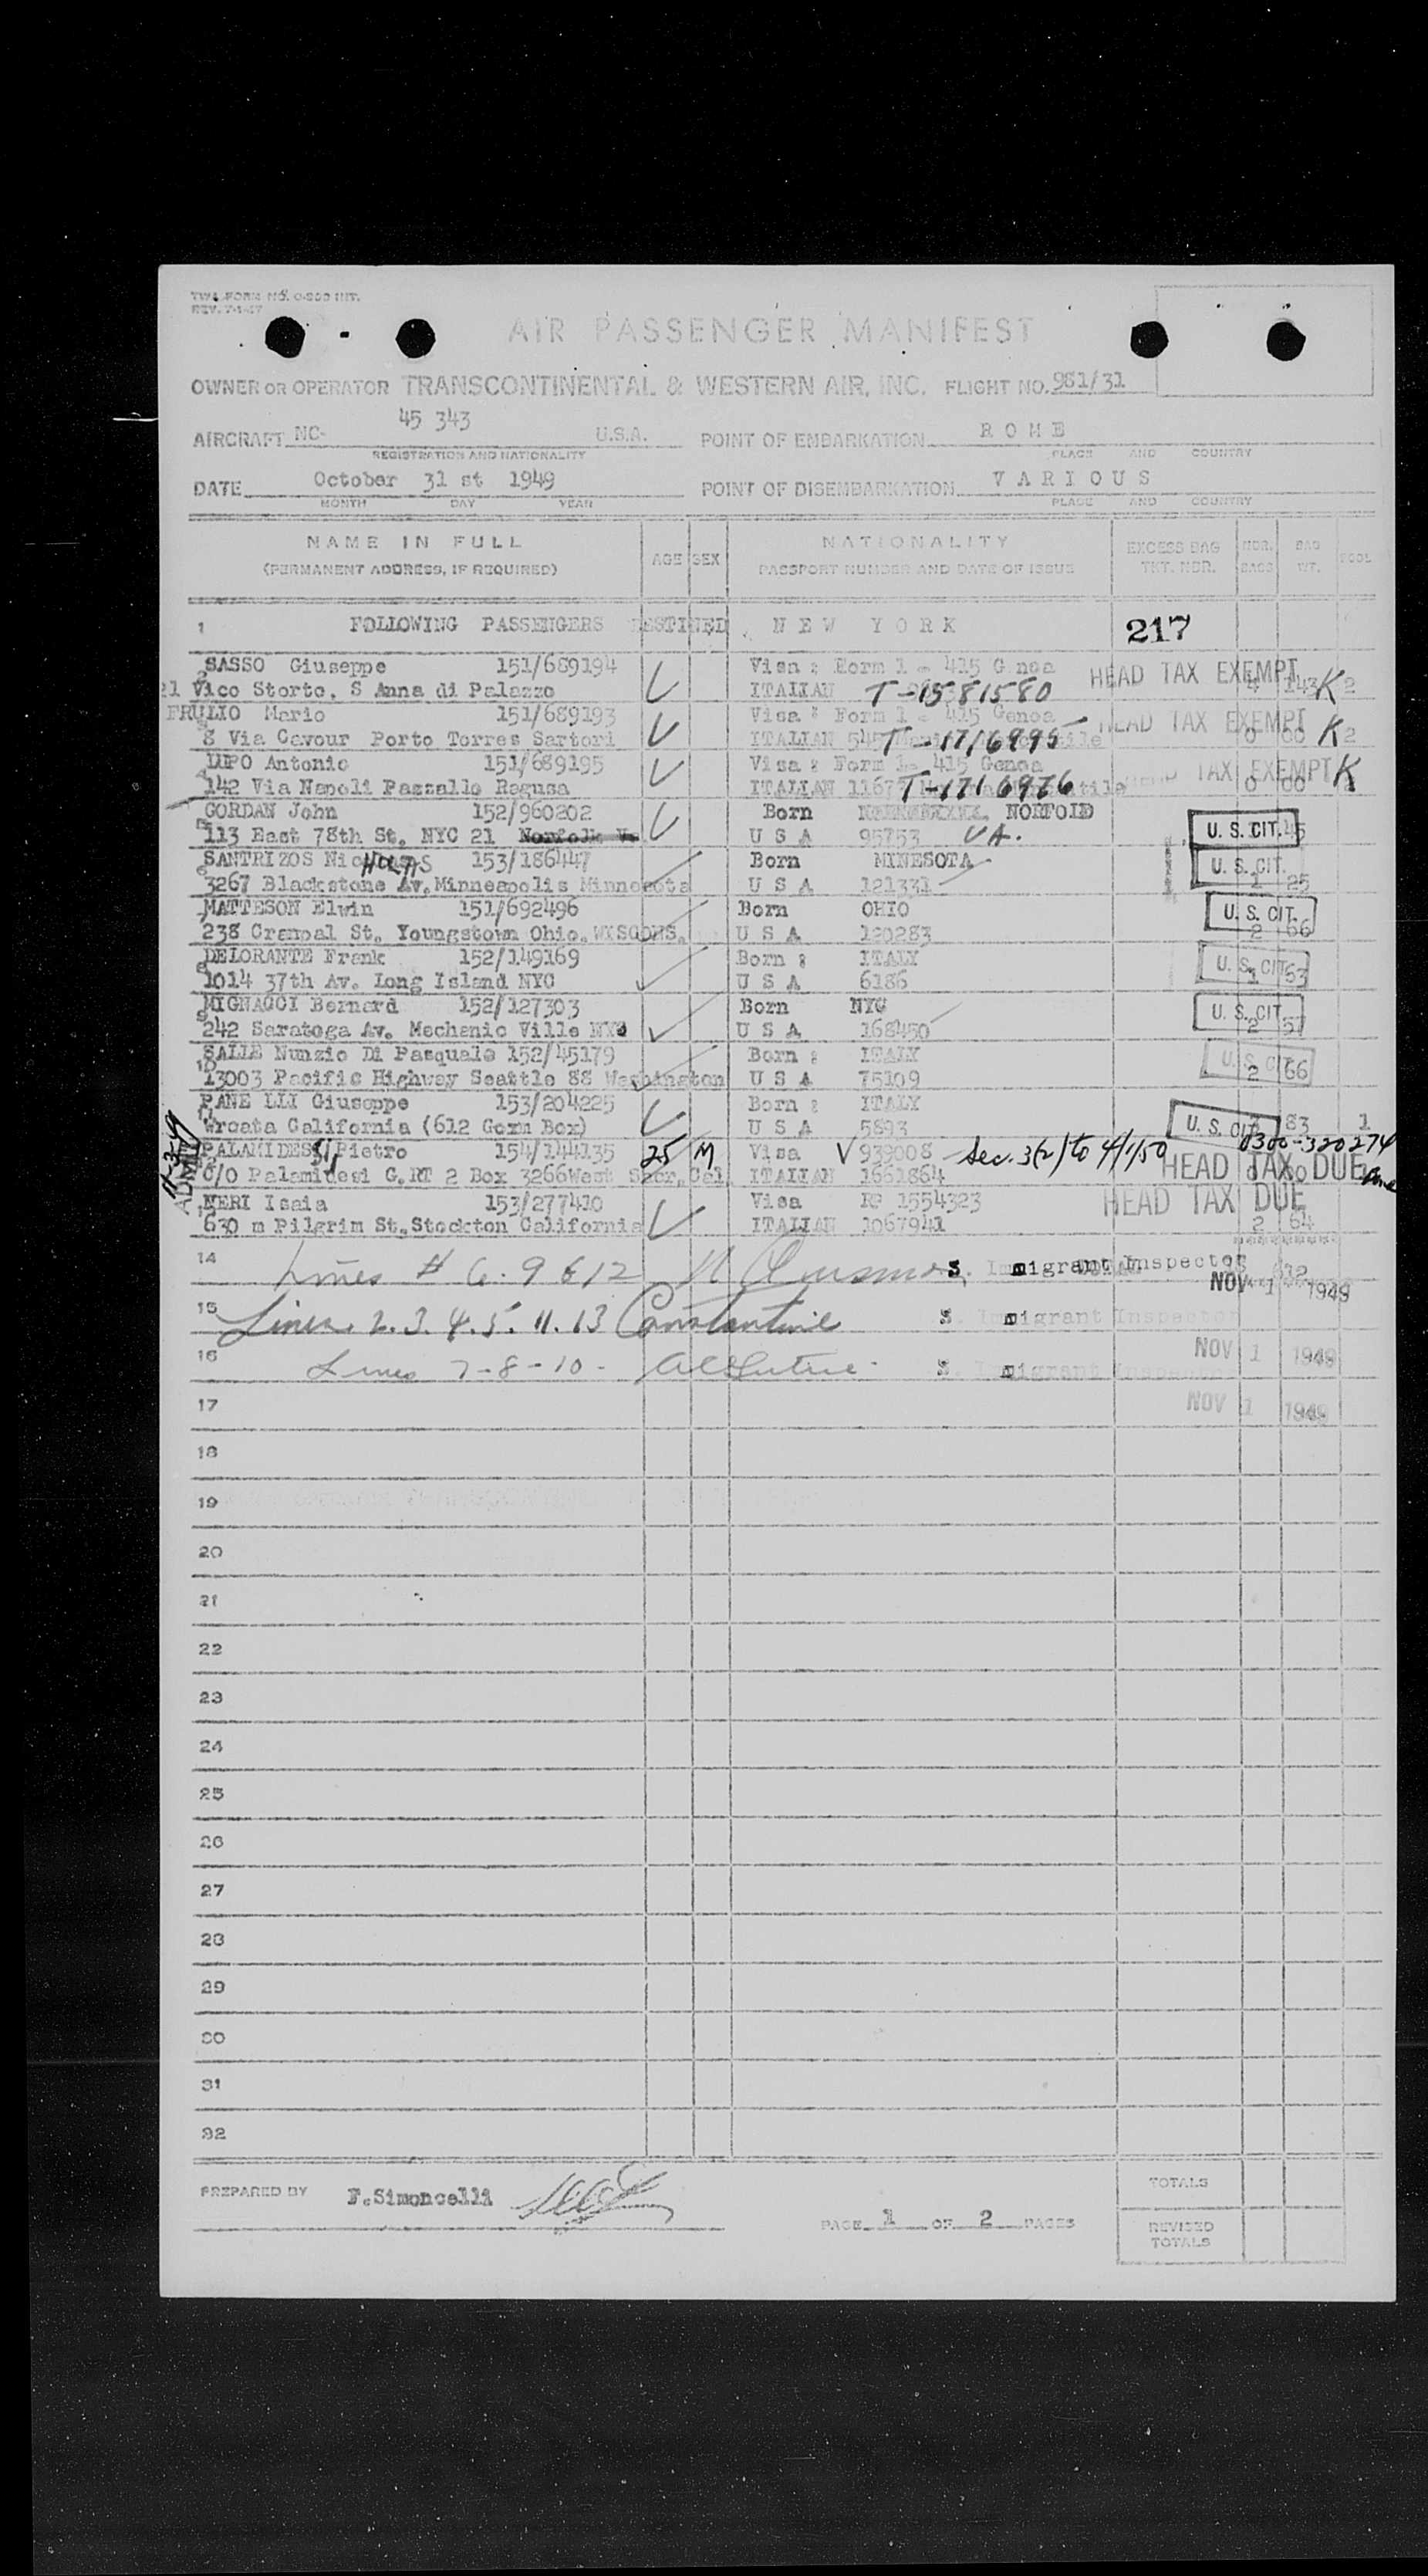 TWA FORM NO. O-800 INT.
REV. 7-1-47
AIR PASSENGER MANIFEST
OWNER OR OPERATOR TRANSCONTINENTAL & WESTERN AIR, INC. FLIGHT NO. 981/31
AIRCRAFT NC- 45 343 U.S.A. POINT OF EMBARKATION R O M E
REGISTRATION AND NATIONALITY PLACE AND COUNTRY
DATE October 31 st 1949 POINT OF DISEMBARKATION V A R I O U S
MONTH DAY YEAR PLACE AND COUNTRY
NAME IN FULL AGE SEX NATIONALITY EXCESS BAG NBR. BAG POOL
(PERMANENT ADDRESS, IF REQUIRED) PASSPORT NUMBER AND DATE OF ISSUE TKT. NBR. BAGS WT.
1 FOLLOWING PASSENGERS DESTINED N E W Y O R K 217
SASSO Giuseppe 151/689194 Visa : Form 1 - 415 G noa HEAD TAX EXEMPT
Vico Storto, S Anna di Palazzo ITALIAN T-1581580 4 143 K 2
FRULIO Mario 151/689193 Visa : Form 1 - 415 Genoa HEAD TAX EXEMPT
8 Via Cavour Porto Torres Sartori ITALIAN T-1716995 0 00 K 2
LUPO Antonio 151/689195 Visa : Form 1- 415 Genoa HEAD TAX EXEMPT K
142 Via Napoli Pazzallo Ragusa ITALIAN T-1716976 0 00
GORDAN John 152/960202 Born NORFOLD
113 East 78th St. NYC 21 Norfolk U S A 95753 VA. U. S. CIT. 45
SANTRIZOS Nicholas 153/186447 Born MINESOTA U. S. CIT.
3267 Blackstone Av. Minneapolis Minnesota U S A 121331 25
MATTESON Elwin 151/692496 Born OHIO U. S. CIT.
238 Crandal St. Youngstown Ohio. WISCONS. U S A 120283 2 66
DELORANTE Frank 152/149169 Born : ITALY U. S. CIT.
1014 37th Av. Long Island NYC U S A 6186 1 53
MIGNACCI Bernard 152/127303 Born NYC U. S. CIT.
242 Saratoga Av. Mechanic Ville NYC U S A 168450 2 57
SALLE Nunzio Di Pasquale 152/45179 Born : ITALY U. S. CIT.
13003 Pacific Highway Seattle 88 Washington U S A 75109 2 66
PANE LLI Giuseppe 153/204225 Born : ITALY
Croata California (612 Gorm Box) U S A 5893 U. S. CIT. 83 1
PALAMIDESSI Pietro 154/144135 25 M Visa V 939008 Sec. 3(2) to 4/1/50 0300-320274
ADMIT 11-3-49
C/O Palamidesi G. RT 2 Box 3266 West Sacr. Cal. ITALIAN 1661864 HEAD TAX DUE
NERI Isaia 153/277410 Visa RP 1554323 HEAD TAX DUE
630 m Pilgrim St. Stockton California ITALIAN 1067941 2 64
14 Lines # 6. 9 & 12 S. Immigrant Inspector
NOV 1 1949
15 Lines 2. 3. 4. 5. 11. 13 Constantine S. Immigrant Inspector
16 Lines 7-8-10- S. Immigrant Inspector NOV 1 1949
17 NOV 1 1949
18
19
20
21
22
23
24
25
26
27
28
29
30
31
32
PREPARED BY F.Simoncelli TOTALS
PAGE 1 OF 2 PAGES REVISED
TOTALS